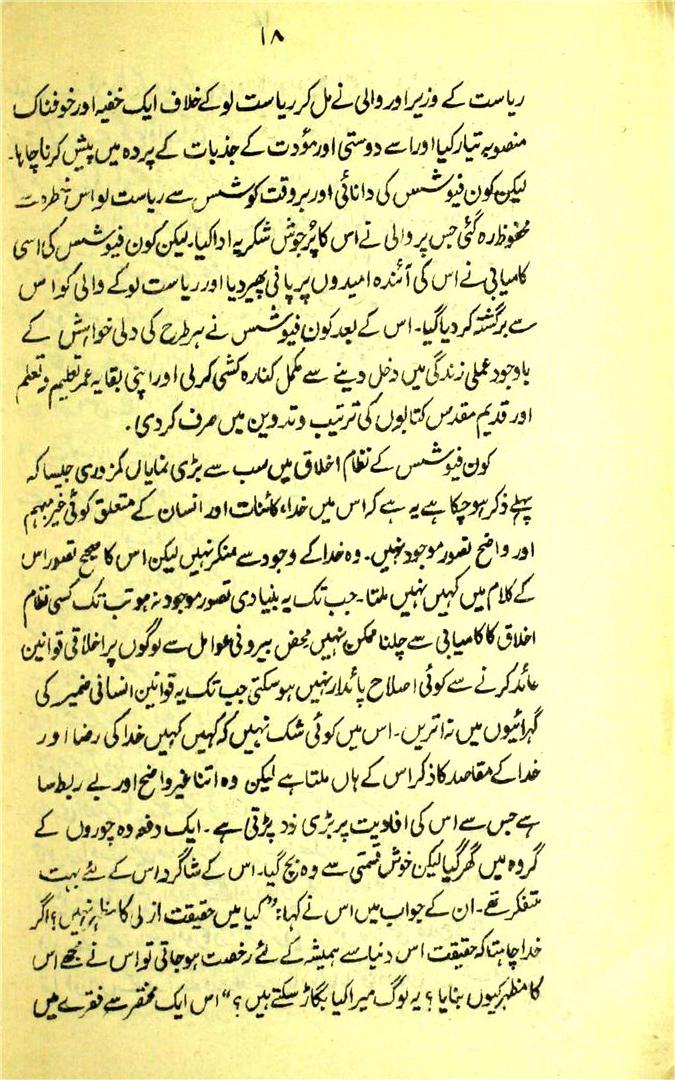 ۱۸
ریاست کے وزیر اور والی نے مل کر ریاست لو کے خلاف ایک خفیہ اور خوفناک
منصوبہ تیار کیا اور اسے دوستی اور مؤدت کے جذبات کے پردہ میں پیش کرنا چاہا۔
لیکن کون فیوشس کی دانائی اور بروقت کوشس سے ریاست لو اس
محفوظ رہ گئی جس پر والی نے اس کا پُرجوش شکریہ ادا کیا۔ لیکن کون فیوشس کی اسی
کامیابی نے اس کی آئندہ امیدوں پر پانی پھیر دیا اور ریاست لو کے والی کو اس
سے برگشتہ کر دیا گیا۔ اس کے بعد کون فیوشس نے ہر طرح کی دلی خواہش کے
باوجود عملی زندگی میں دخل دینے سے مکمل کنارہ کشی کرلی اور اپنی بقایہ عمر تعلیم و تعلم
اور قدیم مقدس کتابوں کی ترتیب و تدوین میں صرف کر دی۔
کون فیوشس کے نظام اخلاق میں سب سے بڑی نمایاں کمزوری جیسا کہ
پہلے ذکر ہو چکا ہے یہ ہے کہ اس میں خدا، کائنات اور انسان کے متعلق کوئی غیر مبہم
اور واضح تصور موجود نہیں۔ وہ خدا کے وجود سے منکر نہیں لیکن اس کا صحیح تصور اس
کے کلام میں کہیں نہیں ملتا۔ جب تک یہ بنیادی تصور موجود نہ ہو تب تک کسی نظام
اخلاق کا کامیابی سے چلنا ممکن نہیں محض بیرونی عوامل سے لوگوں پر اخلاقی قوانین
عائد کرنے سے کوئی اصلاح پائدار نہیں ہوسکتی جب تک یہ قوانین انسانی ضمیر کی
گہرائیوں میں نہ اتریں۔ اس میں کوئی شک نہیں کہ کہیں کہیں خدا کی رضا اور
خدا کے مقاصد کا ذکر اس کے ہاں ملتا ہے لیکن وہ اتنا غیر واضح اور بے ربط سا
ہے جس سے اس کی افادیت پر بڑی زد پڑتی ہے۔ ایک دفعہ وہ چوروں کے
گروہ میں گھر گیا لیکن خوش قسمتی سے وہ بچ گیا۔ اس کے شاگرد اس کے لئے بہت
متفکر تھے۔ ان کے جواب میں اس نے کہا: "کیا میں حقیقت ازلی کا مظہر نہیں؟ اگر
خدا چاہتا کہ حقیقت اس دنیا سے ہمیشہ کے لئے رخصت ہو جاتی تو اس نے مجھے اس
کا مظہر کیوں بنایا؟ یہ لوگ میرا کیا بگاڑ سکتے ہیں؟" اس ایک مختصر سے فقرے میں